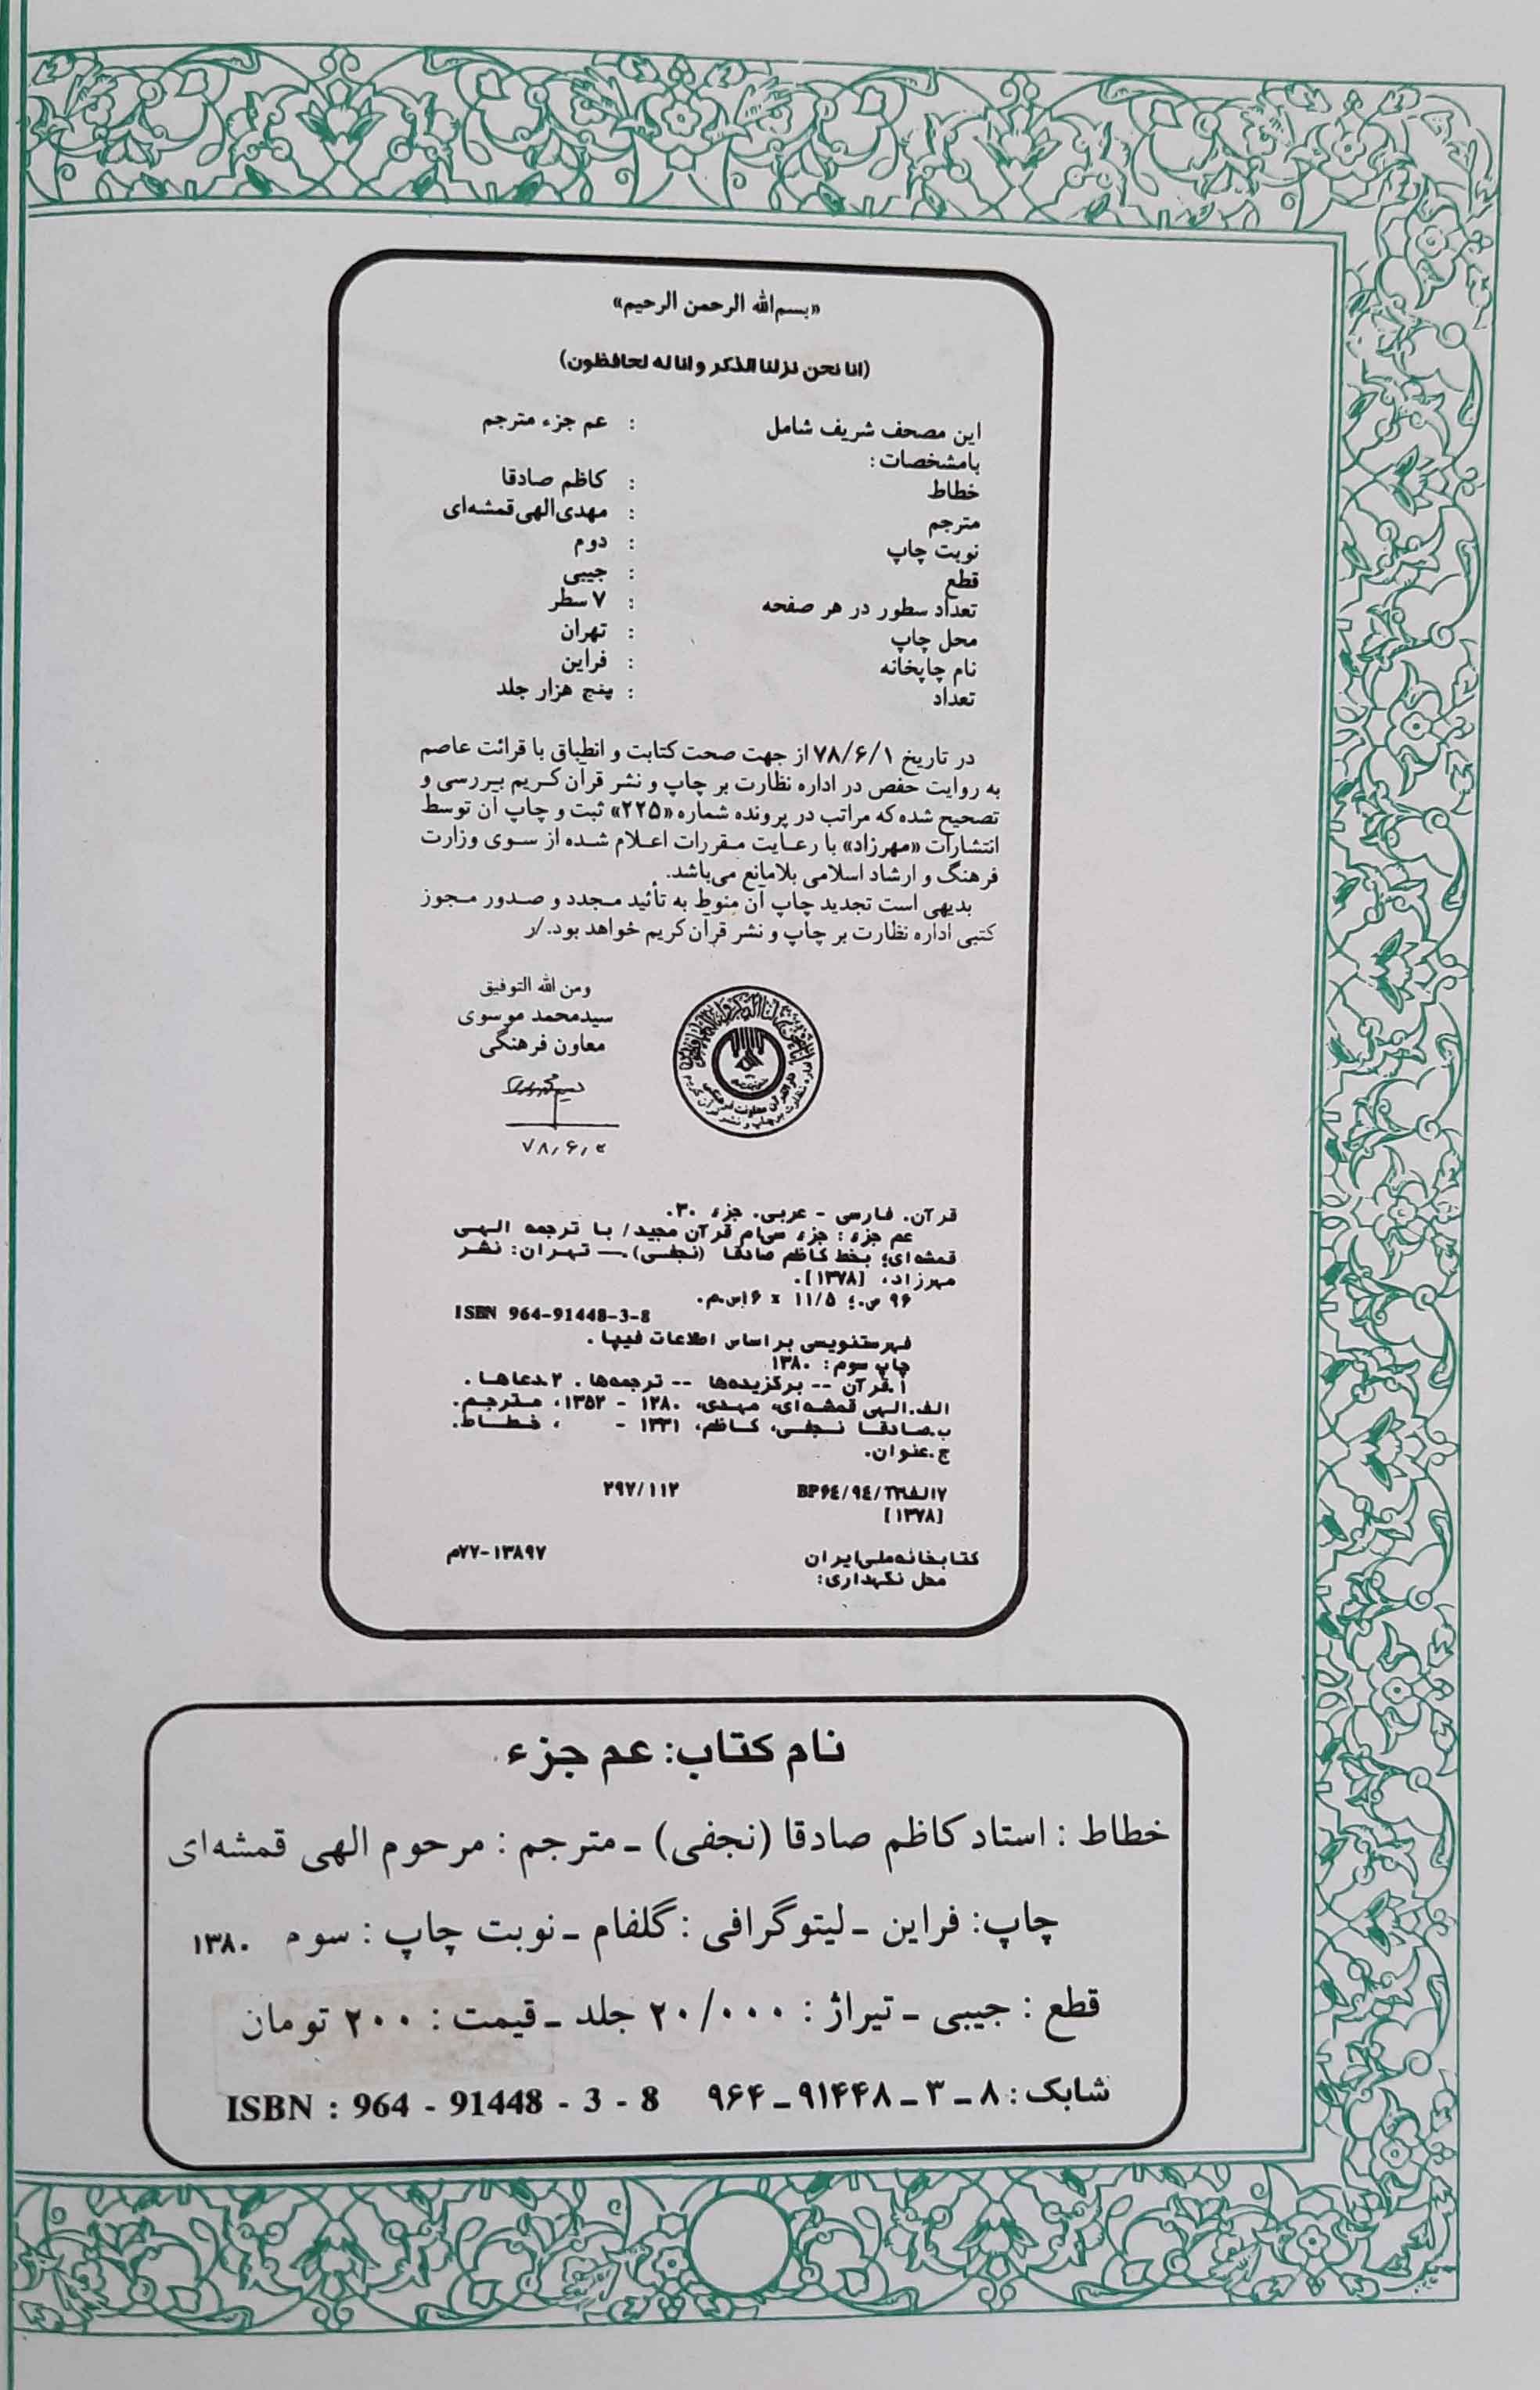 «بسم‌الله الرحمن الرحیم»
(انا نحن نزلنا الذکر و انا له لحافظون)
این مصحف شریف شامل : عم جزء مترجم
بامشخصات :
خطاط : کاظم صادقا
مترجم : مهدی الهی قمشه‌ای
نوبت چاپ : دوم
قطع : جیبی
تعداد سطور در هر صفحه : ۷ سطر
محل چاپ : تهران
نام چاپخانه : فراین
تعداد : پنج هزار جلد
در تاریخ ۷۸/۶/۱ از جهت صحت کتابت و انطباق با قرائت عاصم
به روایت حفص در اداره نظارت بر چاپ و نشر قرآن کریم بررسی و
تصحیح شده که مراتب در پرونده شماره «۲۲۵» ثبت و چاپ آن توسط
انتشارات «مهرزاد» با رعایت مقررات اعلام شده از سوی وزارت
فرهنگ و ارشاد اسلامی بلامانع می‌باشد.
بدیهی است تجدید چاپ آن منوط به تأئید مجدد و صدور مجوز
کتبی اداره نظارت بر چاپ و نشر قرآن کریم خواهد بود./ر
ومن الله التوفیق
سیدمحمد موسوی
معاون فرهنگی
دارالقرآن معاونت فرهنگی
اداره نظارت بر چاپ و نشر قرآن کریم
قرآن. فارسی - عربی. جزء ۳۰.
عم جزء : جزء سی‌ام قرآن مجید/ با ترجمه الهی
قمشه‌ای؛ بخط کاظم صادقا (نجفی).— تهران: نشر
مهرزاد، [۱۳۷۸].
۹۶ ص.؛ ۱۱/۵ x ۱۶س.م.
ISBN 964-91448-3-8
فهرستنویسی بر اساس اطلاعات فیپا .
چاپ سوم: ۱۳۸۰
۱.قرآن -- برگزیده‌ها -- ترجمه‌ها. ۲.دعاها.
الف.الهی قمشه‌ای، مهدی، ۱۲۸۰ - ۱۳۵۲، مترجم.
ب.صادقا نجفی، کاظم، ۱۳۳۱ - ، خطاط.
ج.عنوان.
۲۹۷/۱۱۲
[۱۳۷۸]
کتابخانه ملی ایران ۷۷-۱۳۸۹۷م
محل نگهداری:
نام کتاب: عم جزء
خطاط : استاد کاظم صادقا (نجفی) ـ مترجم : مرحوم الهی قمشه‌ای
چاپ: فراین ـ لیتوگرافی : گلفام ـ نوبت چاپ : سوم ۱۳۸۰
قطع : جیبی ـ تیراژ : ۲۰/۰۰۰ جلد ـ قیمت : ۲۰۰ تومان
شابک : ۸ ـ ۳ ـ ۹۱۴۴۸ ـ ۹۶۴ ISBN : 964 - 91448 - 3 - 8